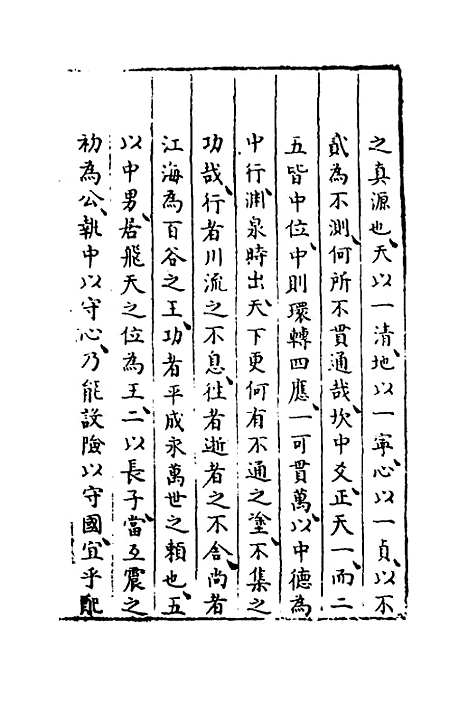 之真源也天以一清地以一寧心以一貞以不
貳為不測何所不貫通哉坎中爻正天一而二
五皆中位中則環轉四應一可貫萬以中德為
中行淵泉時出天下更何有不通之塗不集之
功哉行者川流之不息往者逝者之不舍尚者
江海為百谷之王功者平成永萬世之賴也五
以中男居飛天之位為王二以長子當互震之
初為公執中以守心乃能設險以守國宜乎配